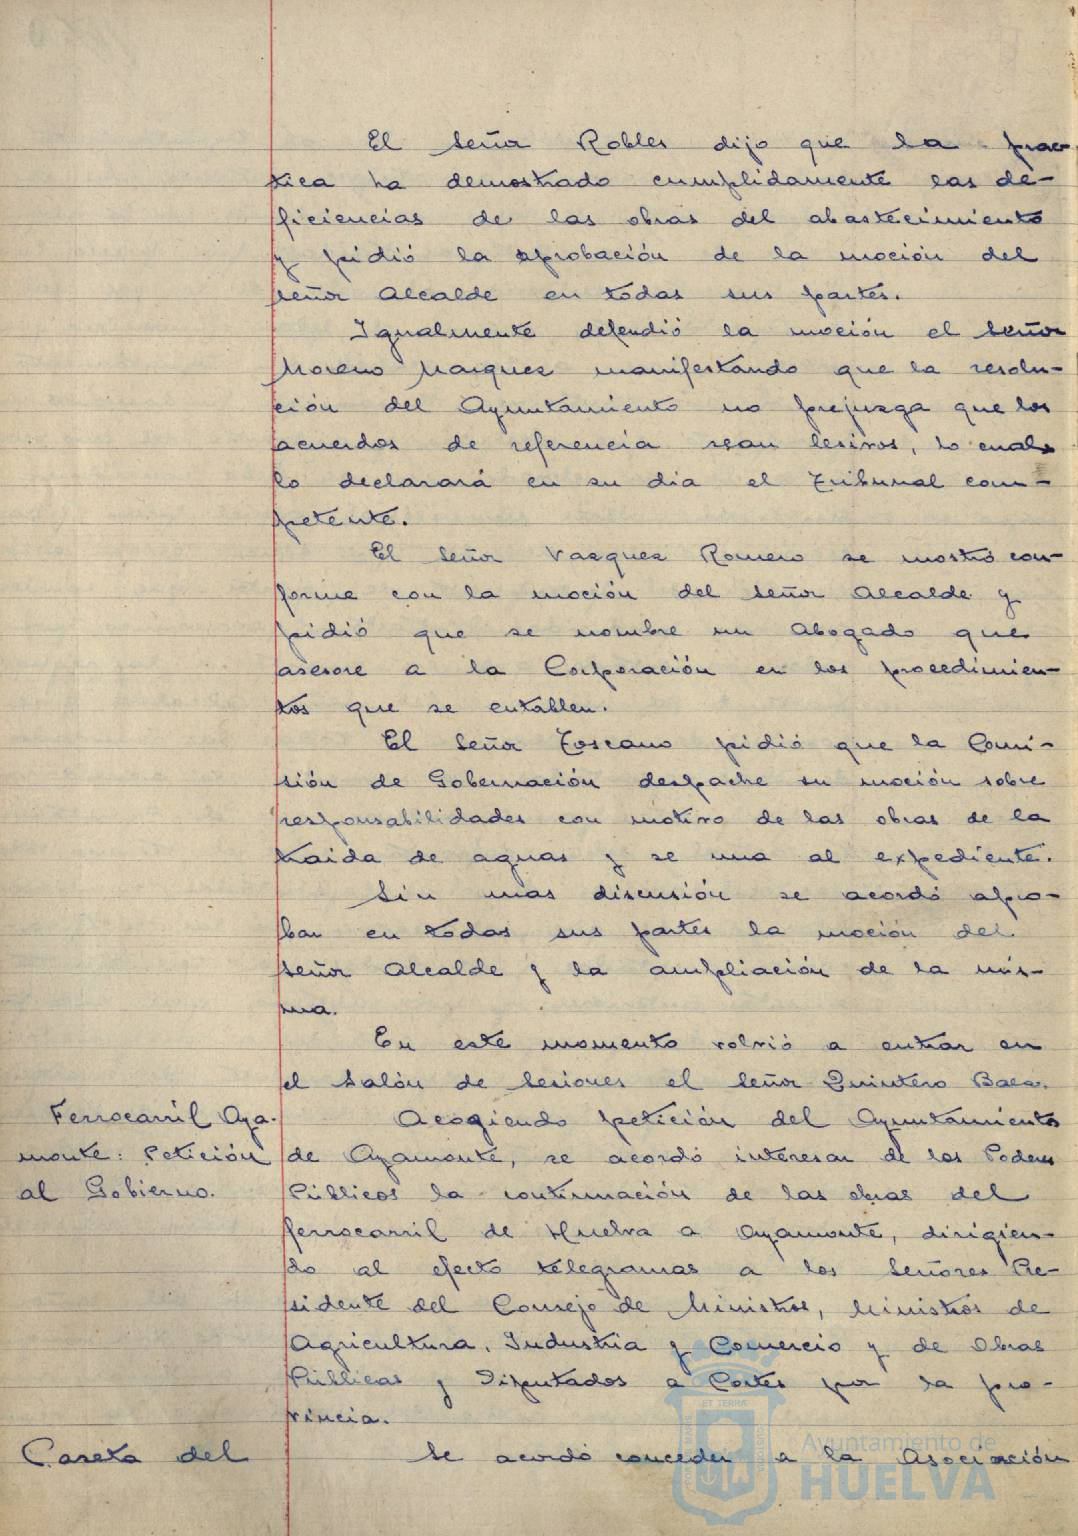 El señor Robles dijo que la prac
tica ha demostrado cumplidamente las de-
ficiencias de las obras del abastecimiento
y pidió la aprobación de la moción del
señor Alcalde en todas sus partes.
Igualmente defendió la moción el señor
Moreno Marquez manifestando que la resolu-
ción del Ayuntamiento no prejuzga que los
acuerdos de referencia sean lesivos, lo cual
lo declarará en su dia el Tribunal com-
petente.
El señor Vazquez Romero se mostró con-
forme con la moción del señor Alcalde y
pidió que se nombre un Abogado que
asesore a la Corporación en los procedimien-
tos que se entablen.
El señor Toscano pidió que la Comi-
sión de Gobernación despache su moción sobre
responsabilidades con motivo de las obras de la
traida de aguas y se una al expediente.
Sin mas discusión se acordó apro-
bar en todas sus partes la moción del
señor Alcalde y la ampliación de la mis-
ma.
En este momento volvió a entrar en
el Salón de Sesiones el señor Quintero Baez.
Ferrocarril Aya-
monte: Petición
al Gobierno.
Acogiendo petición del Ayuntamiento
de Ayamonte, se acordó interesar de los Poderes
Públicos la continuación de las obras del
ferrocarril de Huelva a Ayamonte, dirigien-
do al efecto telegramas a los Señores Pre-
sidente del Consejo de Ministros, Ministros de
Agricultura, Industria y Comercio y de Obras
Públicas y Diputados a Cortes por la pro-
vincia.
Caseta del
Se acordó conceder a la Asociación
Ayuntamiento de
HUELVA